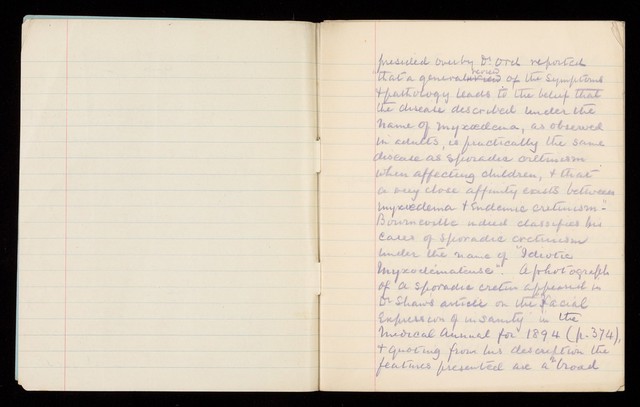 presided over by Dr Ord reported
"that a general review of the symptoms
& pathology leads to the belief that
the disease described under the
name of myxoedema, as observed
in adults, is practically the same
disease as sporadic cretinism
when affecting children, & that
a very close affinity exists between
myxoedema & endemic cretinism."
Bourneville indeed classifies his
cases of sporadic cretinism
under the name of "Idiotie
Myxoedemateuse". A photograph
of a sporadic cretin appeared in
Dr Shaw's article on the "Facial
Expression of insanity" in the
Medical Annual for 1894 (p. 374),
& quoting from his description the
features presented are a "broad